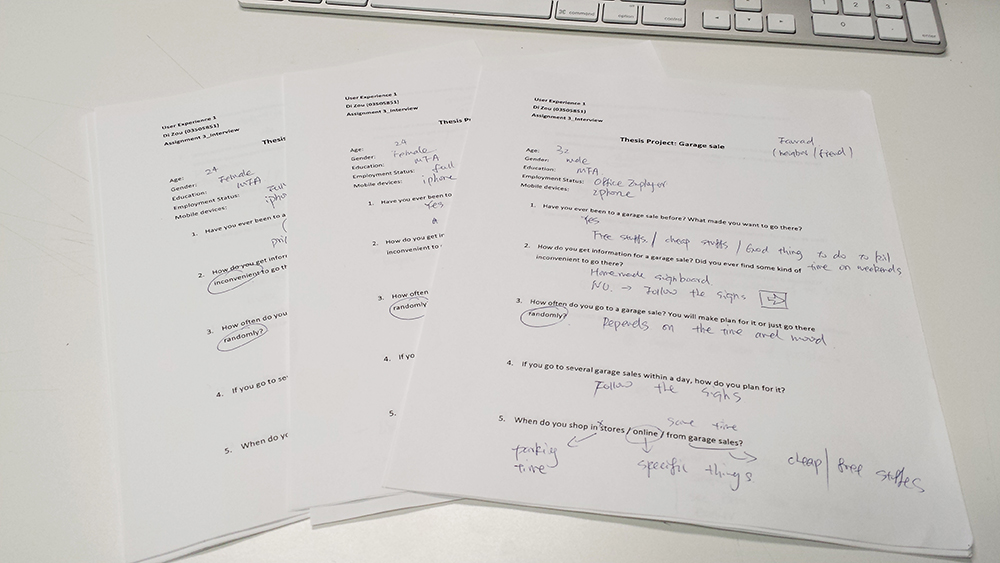 command
option
control
1
2
3
0
.
enter
User Experience 1
Di Zou (03505851)
Assignment 3_Interview
Thesis
Age: 24
Gender: Female
Education: MFA
Employment Status: Full
Mobile devices: iphone
1. Have you ever been to a
2. How do you get inform
inconvenient to go th
3. How often do you
randomly?
4. If you go to se
5. When do yo
User Experience 1
Di Zou (03505851)
Assignment 3_Interview
Thesis Pro
Age: 24
Gender: Female
Education: MFA
Employment Status: full
Mobile devices: iphone
1. Have you ever been to
Yes
2. How do you get in
inconvenient to
3. How often
randomly?
4. If yo
5.
User Experience 1
Di Zou (03505851)
Assignment 3_Interview
Thesis Project: Garage sale
Age: 32
Gender: male
Education: MFA
Employment Status: Office
Mobile devices: iphone
1. Have you ever been to a garage sale before? What made you want to go there?
Yes
Free stuffs. / cheap stuffs / Good thing to do to kill
time on weekends
2. How do you get information for a garage sale? Did you ever find some kind of
inconvenient to go there?
Homemade signboard
NO. → Follow the signs
3. How often do you go to a garage sale? You will make plan for it or just go there
randomly?
Depends on the time and mood.
4. If you go to several garage sales within a day, how do you plan for it?
Follow the signs
5. When do you shop in stores / online / from garage sales?
save time
parking
time
specific things
cheap / free stuffes